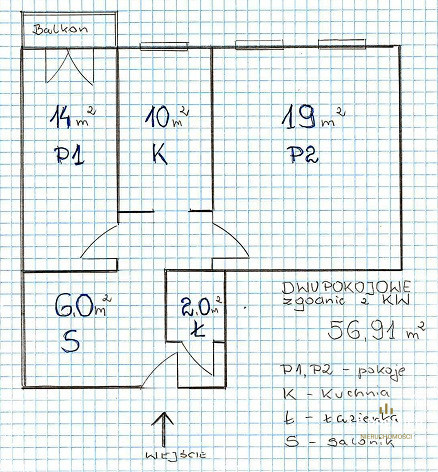 Balkon
14 m²
P1
10 m²
K
19 m²
P2
6,0 m²
S
2,0 m²
Ł
DWUPOKOJOWE
zgodnie z KW
56,91 m²
P1, P2 - pokoje
K - Kuchnia
Ł - Łazienka
S - Salonik
NIERUCHOMOŚCI
WEJŚCIE